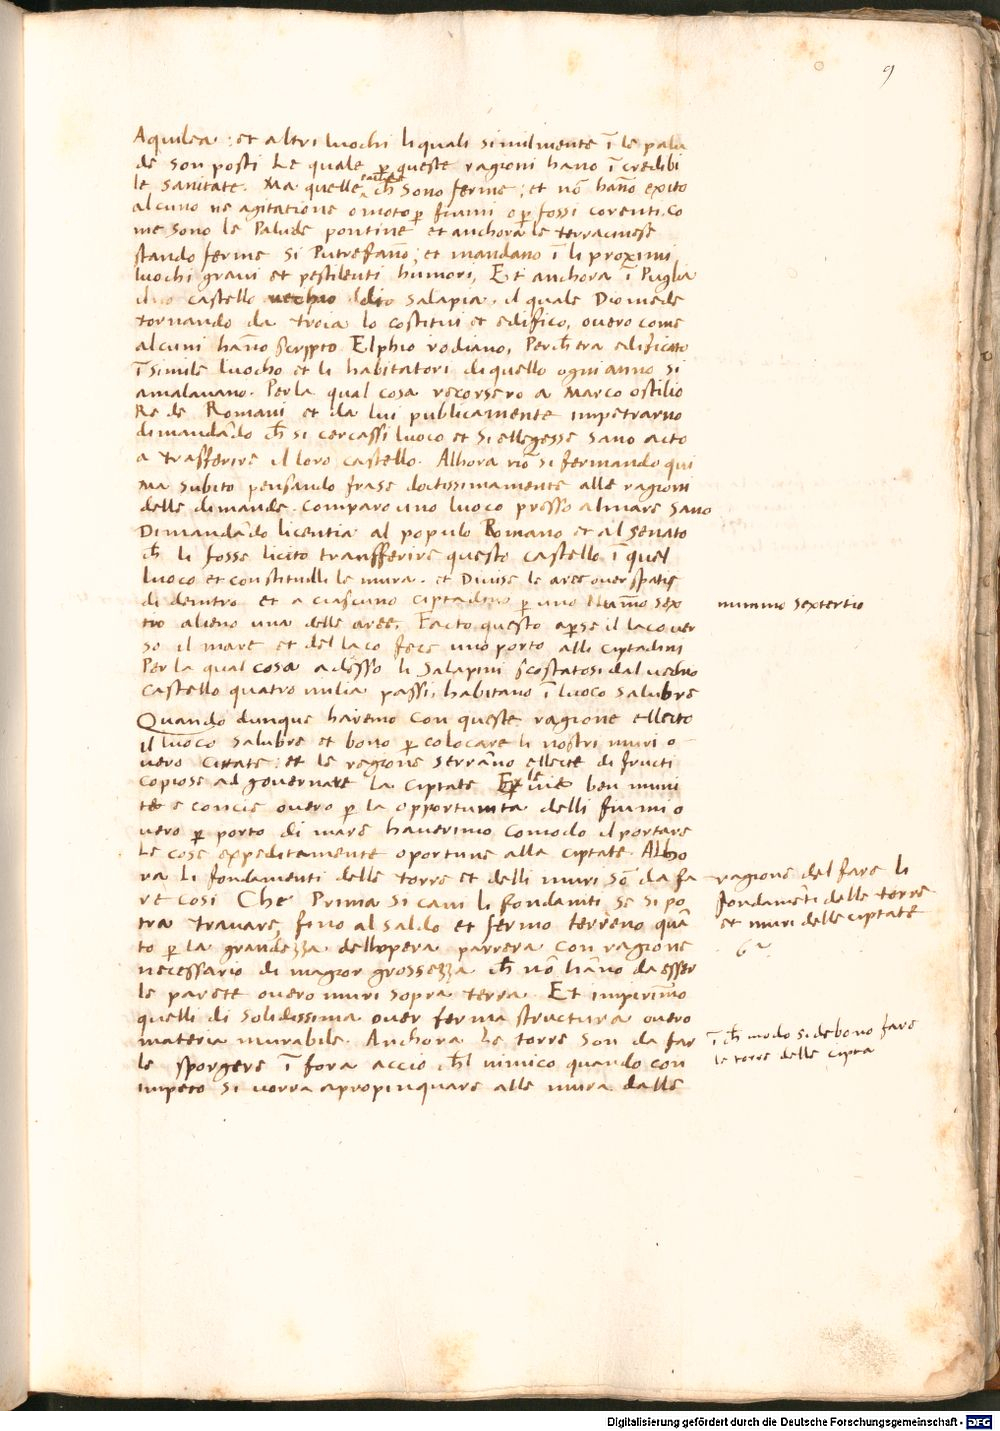 9
Aquilea : et altri luochi li quali similmente ī le palu
de son posti Le quale ꝑ queste ragioni hano ī credibi
le sanitate. Ma quelle ch̄ sono ferme; et nō hāno exito
alcuno ne agitatione o moto ꝑ fiumi o ꝑ fossi corenti. Co
me sono le Palude pontine et anchora le terracinese
stando ferme si Putrefano; et mandano ī li proximi
luochi gravi et pestilenti humori, Et anchora ī Puglia
castello vechio dcto Salapia. il quale Diomede
tornando da troia lo costitui et edifico, overo come
alcuni hāno scrypto Elphio rodiano, Perch̄ era edificato
ī simile luocho et li habitatori di quello ogni anno si
amalavano. Per la qual cosa recorsero a Marco ostilio
Re de Romani et da lui publicamente impetrarno
dimandādo ch̄ si cercassi luoco et si ellegesse sano acto
a trasferire il loro castello. Alhora nō si fermando qui
ma subito pensando frase doctissimamente alle ragioni
delle dimande. comparo uno luoco presso al mare sano
Dimandādo licentia al populo Romano et al senato
ch̄ li fosse licito transfferire questo castello ī quel
luoco et constituilli le mura. et Divise le aree over spatii
di dentro et a ciascuno ciptadino ꝑ uno Nummo sex
tio alieno una delle aree. Facto questo aꝑse il laco ver
so il mare et del laco fece uno porto alli ciptadini
Per la qual cosa adesso li Salapini scostatosi dal vechio
castello quatro milia passi, habitano ī luoco salubre
Quando dunque haremo con queste ragione ellecto
il luoco salubre et bono ꝑ colocare li nostri muri o
vero Cittate; et le regione serrāno ellecte di fructi
copiose ad governare la ciptate Et le vie ben muni
te e concie overo ꝑ la opportunita delli fiumi o
vero ꝑ porto di mare haverimo comodo il portare
Le cose expeditamente oportune alla ciptate. Alho
ra li fondamenti delle torre et delli muri sō da fa
re cosi Che Prima si cavi li fondamti se si po
tra travare fino al saldo et fermo terreno quā
to ꝑ la grandezza dellopera parrera con ragione
necessario di magior grossezza ch̄ nō hāno da esser
le parete overo muri sopra terra. Et impirimo
quelli di solidissima over ferma structura overo
materia murabile. Anchora le torre son da far
le sporgere ī fora accio ch̄l nimico quando con
impeto si vorra apropinquare alle mura dalle
nummo sextertio
ragione del fare li
fondamēti delle torre
et muri delle ciptate
ī ch̄ modo si debono fare
le torre delle cipta
Digitalisierung gefördert durch die Deutsche Forschungsgemeinschaft - DFG